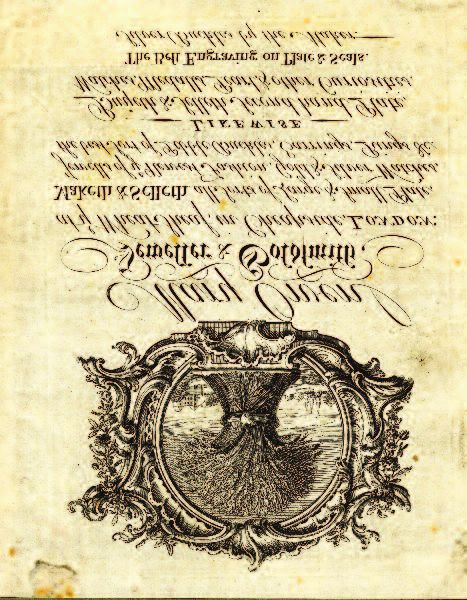 Mary Owen
Jeweller & Goldsmith,
at ye Wheat Sheaf in Cheapside, LONDON:
Maketh & Selleth all sorts of Large & Small Plate,
Jewels of ye Newest Fashion, Gold & Silver Watches,
the best sort of Pebble Buckles, Earrings, Rings &c.
LIKEWISE
Buyeth & Selleth Second hand Plate,
Watches, Medalls, Pearl & other Curiosities
The Best Engraving on Plate & Seals.
Silver Buckles by the Maker.